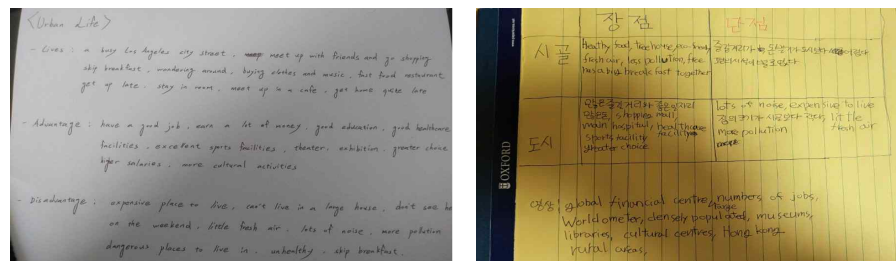 <Urban Life>
- Lives : a busy Los Angeles city street meet up with friends and go shopping
skip breakfast , wandering around , buying clothes and music , fast food restaurant
get up late . stay in room , meet up in a cafe , get home quite late
- Advantage : have a good job , earn a lot of money , good education , good healthcare
facilities , excellent sports facilities , theater . exhibition , greater choice
higher salaries , more cultural activities
- Disadvantage : expensive place to live , can't live in a large house , don't
on the weekend , little fresh air , lots of noise , more pollution
dangerous places to live in . unhealthy , skip breakfast .
OXFORD
장점 단점
시골
Healthy food, tree house,
fresh air, less pollution, free
has a big breakfast together
도시
많은 즐길거리가 좋은 일자리
많은돈, shopping mall,
main hospital, healthcare
sports facility facility
greater choice
lots of noise, expensive to live
집의 크기가 시골보다 작다, little
more pollution fresh air
영상: global financial centre, numbers of jobs,
Worldometer, densely populated, museums,
large
libraries, cultural centres, Hong Kong
rural areas,